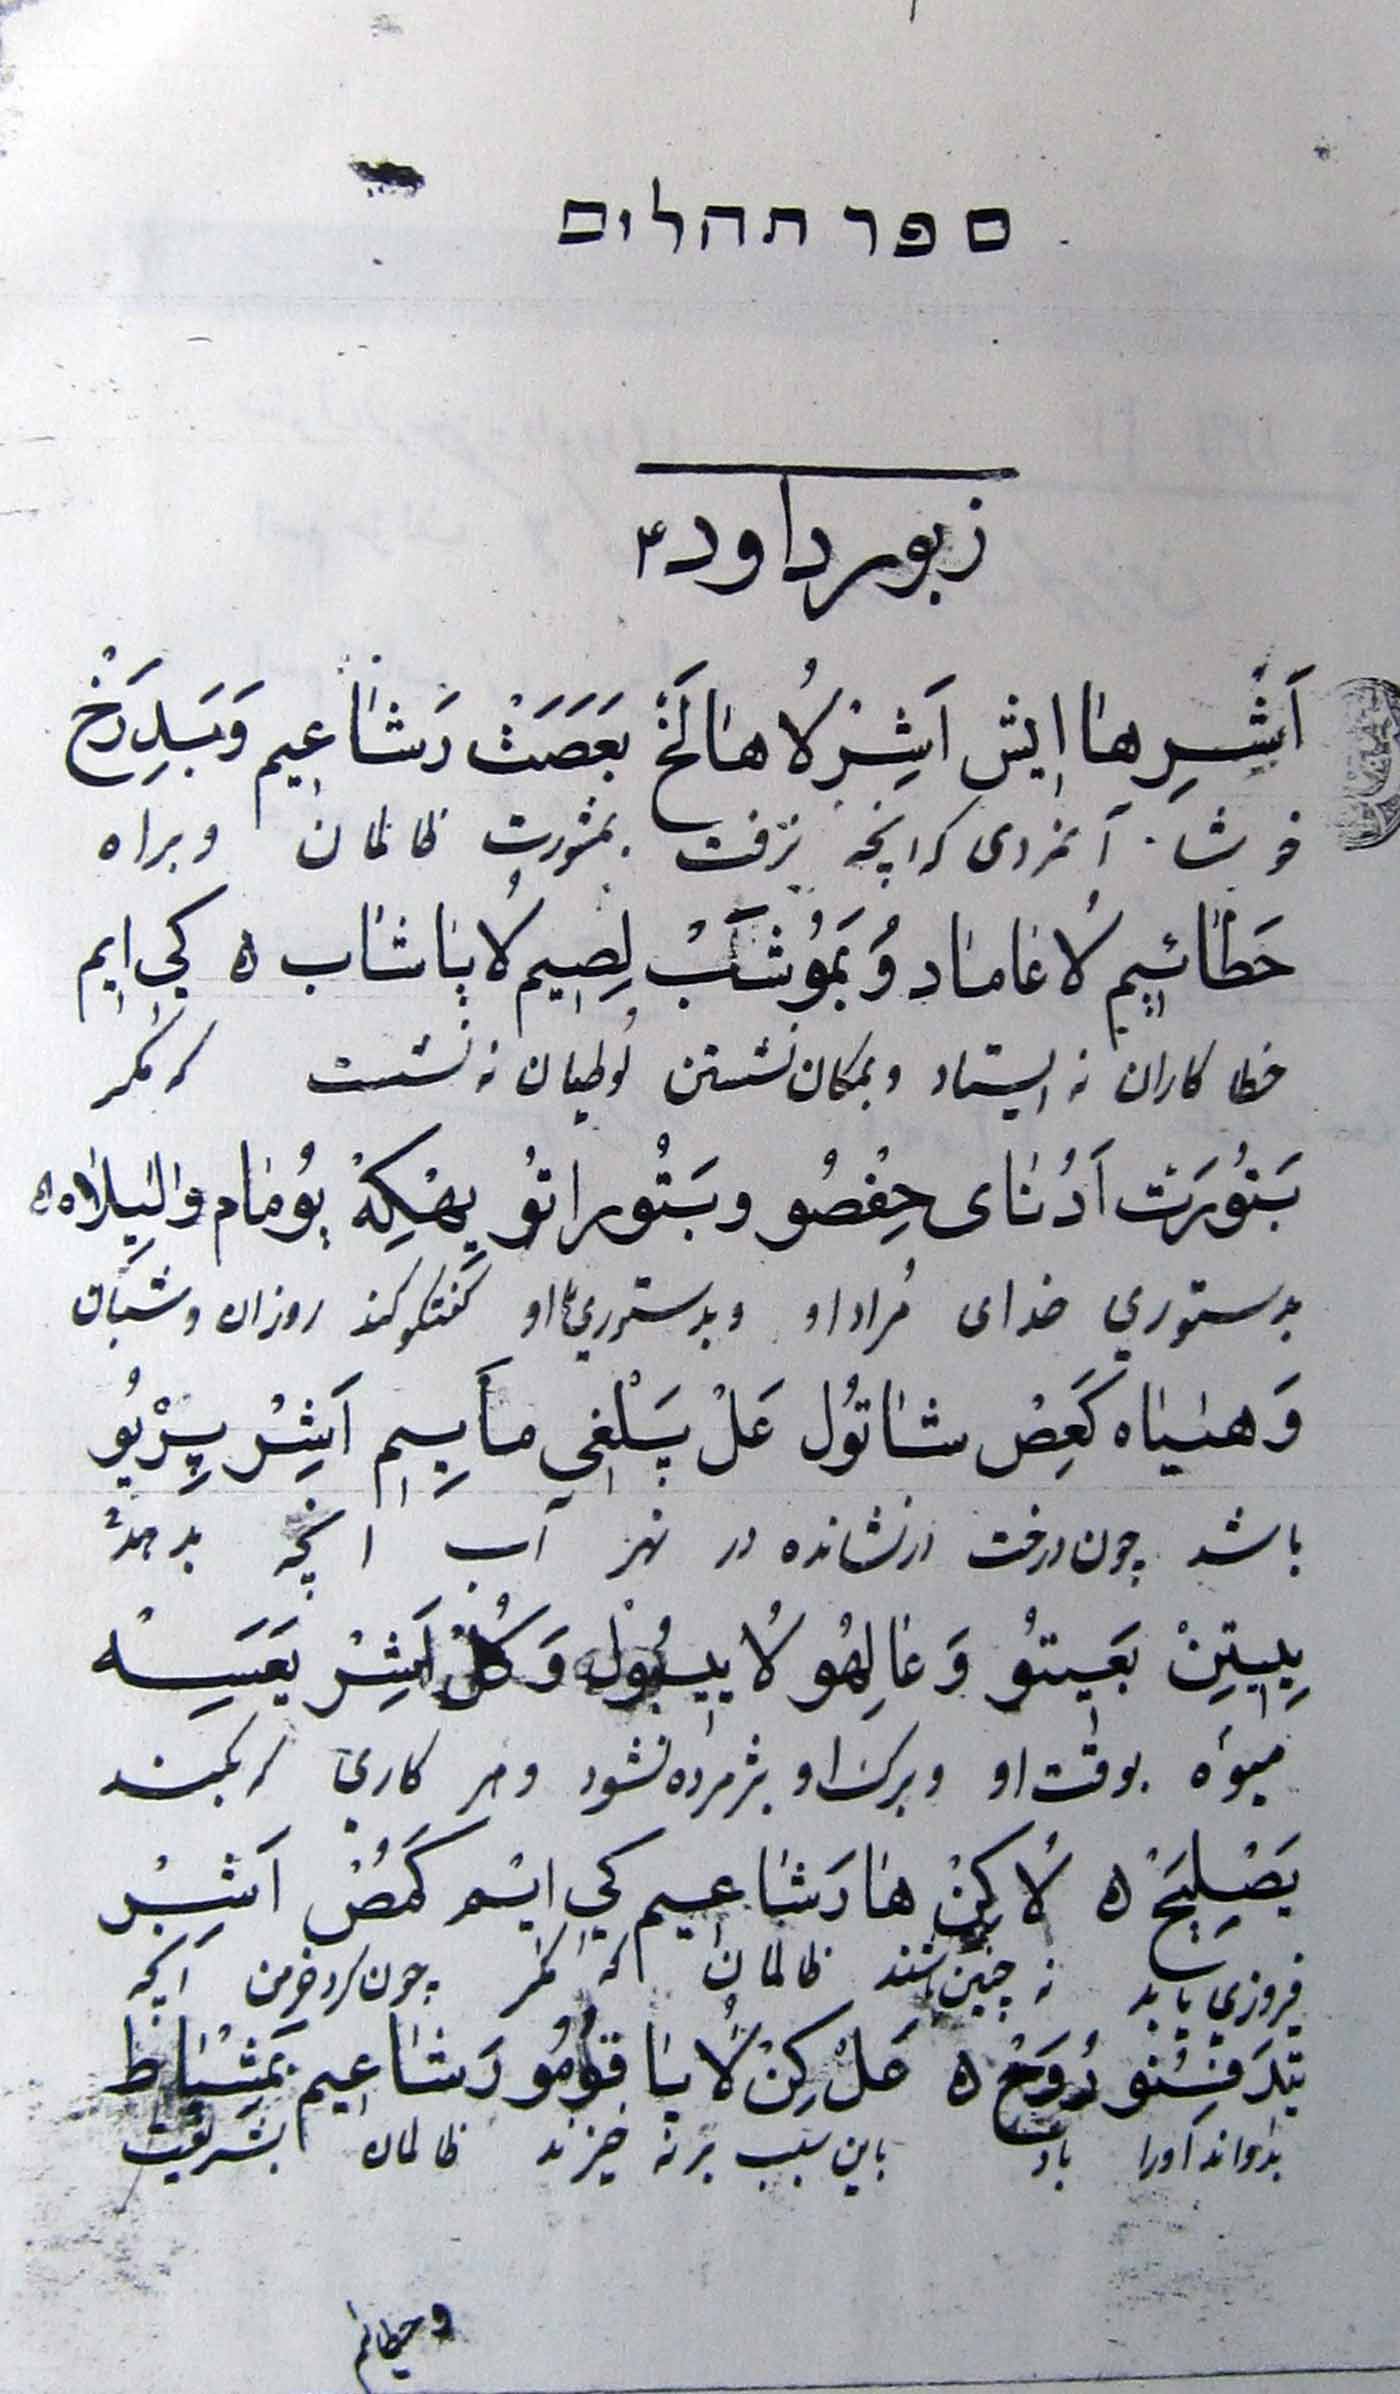 ספר תהלים
زبور داود ۴
اَشْرِ هاایش اَشِرْ لاُ هالَخْ بَعَصَتْ رَشاعیم وَبَدِرَخْ
خوشا آنمردی که انچه نرفت بمشورت ظالمان وبراه
حَطائیم لاُ عاماد وُبَمَوُشَبْ لِصیم لاُ یاشاب ه کی ایم
خطا کاران نه ایستاد و بمکان نشستن لوطیان نه نشست که مکر
بَتوُرَت اَدُنای حِفْصُو وبَتُوراتوُ یِهْکِهْ یوُمام والَیِلاه ه
بدستوري خدای مُراد او وبدستوري او گفتگو کند روزان وشبان
وَهایاه کَعِصْ شاتوُل عَلْ پَلْغی مأَیِم اَشِرْ پِرْیوُ
باشد چون درخت درنشانده در نهر آب انچه بدهد
یِیتِنْ بَعیتوُ وَعالِهُو لاُ ییبُولْ وَکُلْ اَشِرْ یَعَسِه
میوه بوقت او وبرک او پژمرده نشود وهر کاري که بکند
یَصْلِیَحْ ه لاُ کِنْ هارَشاعیم کی ایْم کَمُصْ اَشِرْ
فروزي یابد نه چنین هستند ظالمان که مکر چون کرد خرمن آنچه
تِدَفِنُو رُوَحْ ه عَلْ کِنْ لاُ یاقوُمُو رَشاعیم بَمِشْپاط
بدواند اورا باد باین سبب برنه خیزند ظالمان بشریعت
وحطائم